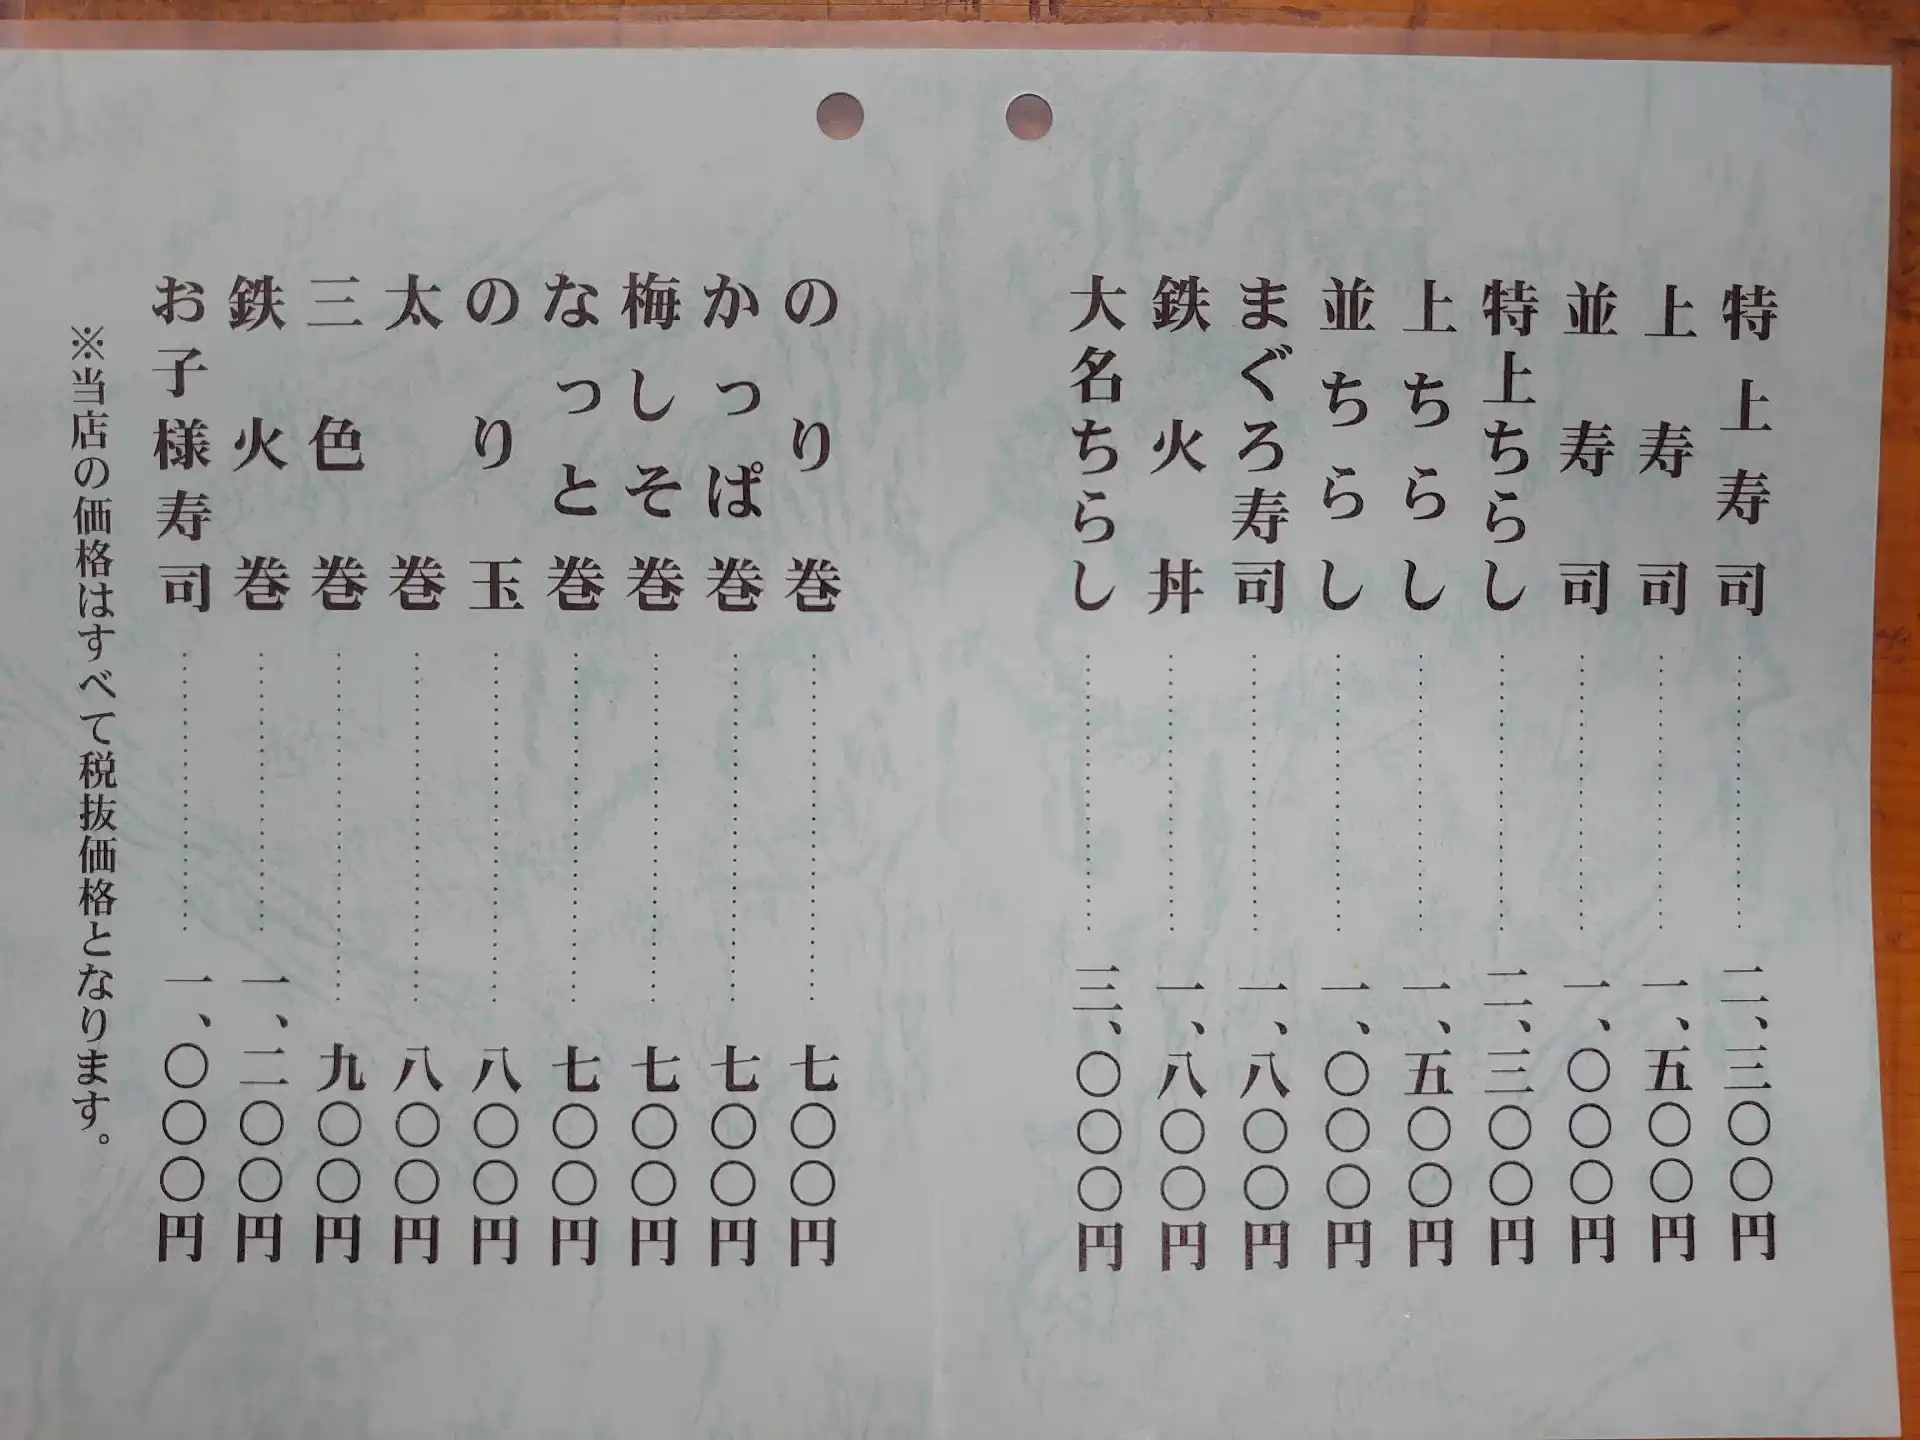 特上寿司 二、三〇〇円
上寿司 一、五〇〇円
並寿司 一、〇〇〇円
特上ちらし 二、三〇〇円
上ちらし 一、五〇〇円
並ちらし 一、〇〇〇円
まぐろ寿司 一、八〇〇円
鉄火丼 一、八〇〇円
大名ちらし 三、〇〇〇円
のり巻 七〇〇円
かっぱ巻 七〇〇円
梅しそ巻 七〇〇円
なっと巻 七〇〇円
のり玉 八〇〇円
太巻 八〇〇円
三色巻 九〇〇円
鉄火巻 一、二〇〇円
お子様寿司 一、〇〇〇円
※当店の価格はすべて税抜価格となります。